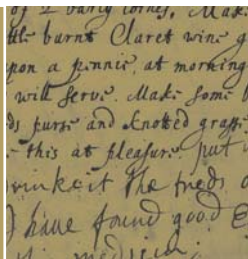 of 2 barly cornes. Make
tle burnt Claret wine g
pon a pennie, at morning
will serve. Make some b
ds purse and knotted grasse
this at pleasure. put
drinke it the
I have found good E
medicin